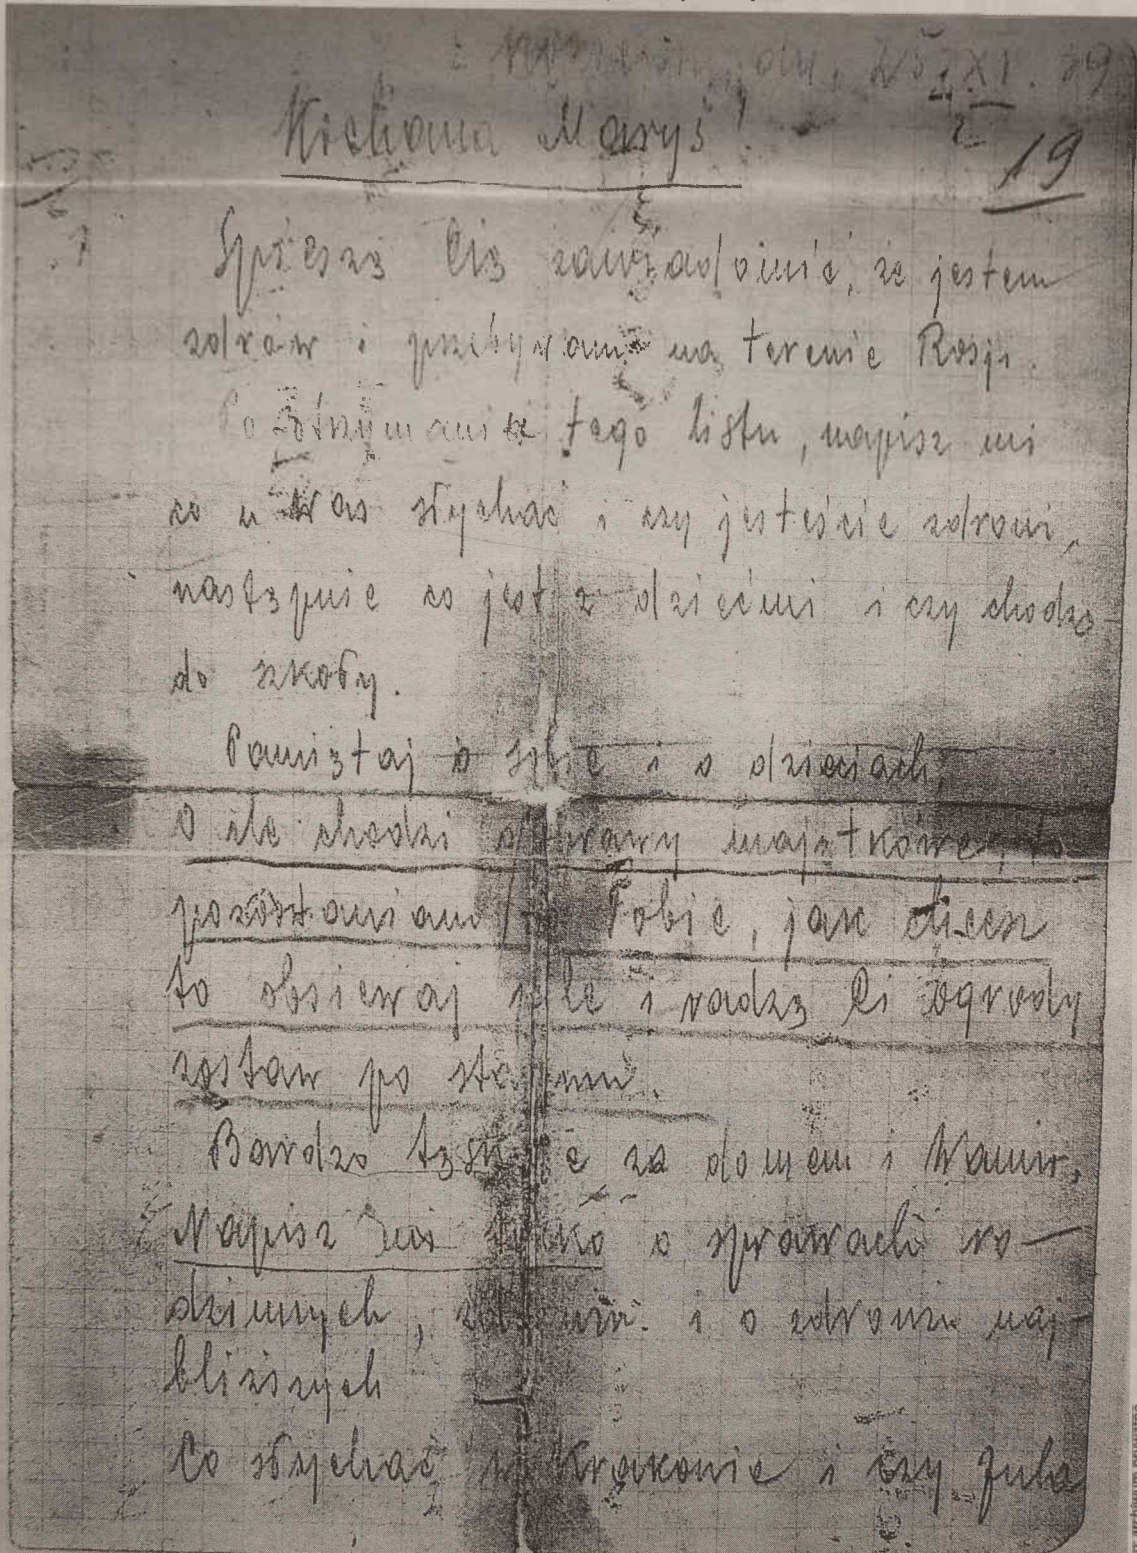 dn. 25. XI. 39
19
Kochana Maryś!
Spieszę Cię zawiadomić, że jestem
zdrów i przebywam na terenie Rosji.
Po otrzymaniu tego listu, napisz mi
co u Was słychać i czy jesteście zdrowi,
następnie co jest z dziećmi i czy chodzą
do szkoły.
Pamiętaj o sobie i o dzieciach,
O ile chodzi o sprawy majątkowe, to
pozostawiam to Tobie, jak chcesz
to obsiewaj rolę i radzę Ci ogrody
zostaw po staremu.
Bardzo tęsknię za domem i Wami.
Napisz mi tylko o sprawach ro-
dzinnych, i o zdrowiu naj-
bliższych
Co słychać w Krakowie i czy Jula